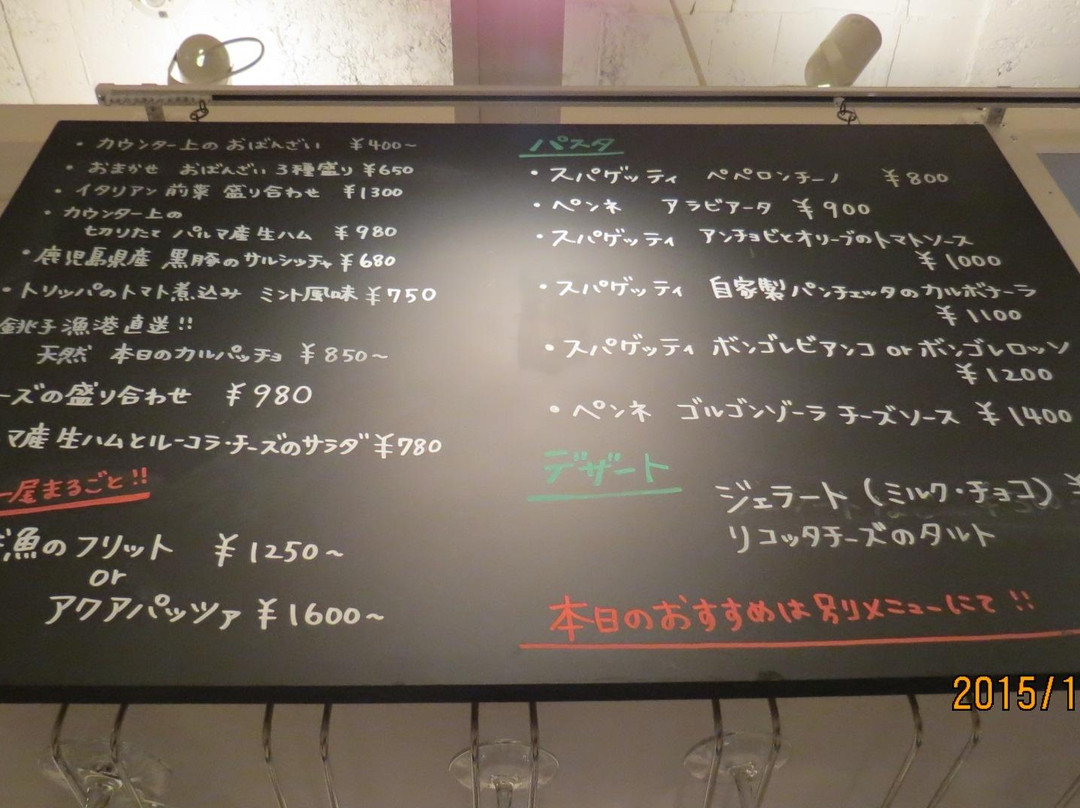 ・カウンター上の おばんざい ¥400~
・おまかせ おばんざい 3種盛り ¥650
・イタリアン 前菜 盛り合わせ ¥1300
・カウンター上の
切りたて パルマ産生ハム ¥980
・鹿児島県産 黒豚のサルシッチャ ¥680
・トリッパのトマト煮込み ミント風味 ¥750
銚子漁港直送!!
天然 本日のカルパッチョ ¥850~
ーズの盛り合わせ ¥980
マ産生ハムとルーコラ・チーズのサラダ ¥780
一尾まるごと!!
魚のフリット ¥1250~
or
アクアパッツァ ¥1600~
パスタ
・スパゲッティ ペペロンチーノ ¥800
・ペンネ アラビアータ ¥900
・スパゲッティ アンチョビとオリーブのトマトソース
¥1000
・スパゲッティ 自家製パンチェッタのカルボナーラ
¥1100
・スパゲッティ ボンゴレビアンコ or ボンゴレロッソ
¥1200
・ペンネ ゴルゴンゾーラ チーズソース ¥1400
デザート
ジェラート (ミルク・チョコ) ¥
リコッタチーズのタルト
本日のおすすめは別メニューにて!!
2015/1